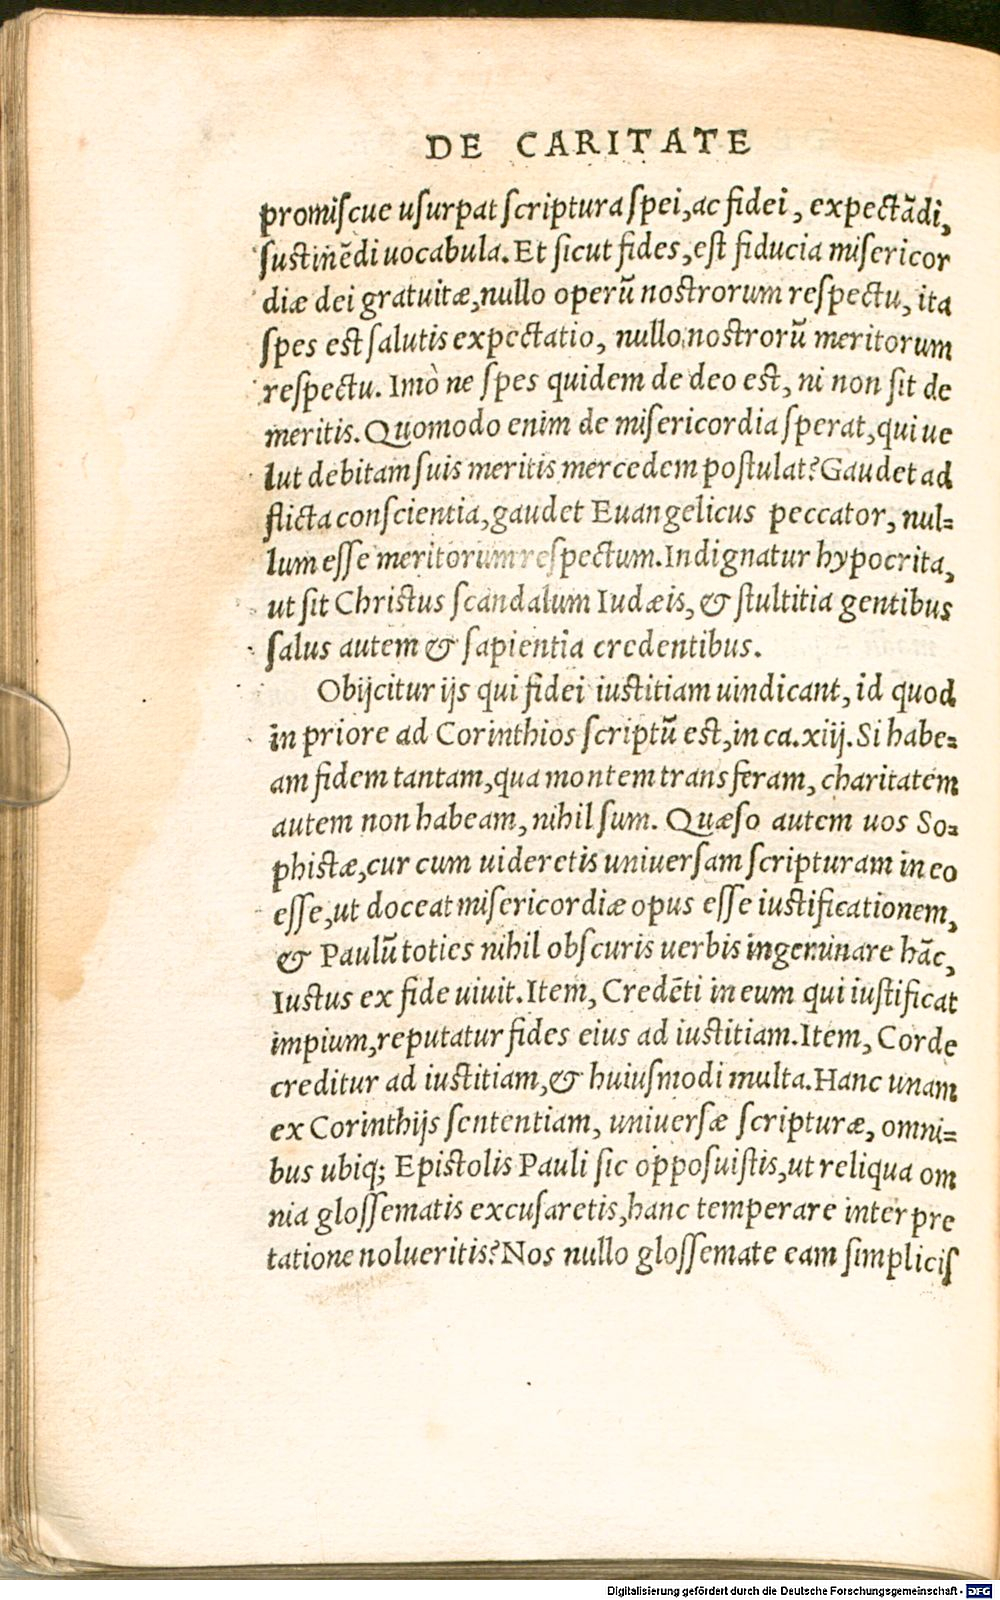 DE CARITATE
promiscue usurpat scriptura spei, ac fidei, expectādi,
sustinēdi uocabula. Et sicut fides, est fiducia misericor
diæ dei gratuitæ, nullo operū nostrorum respectu, ita
spes est salutis expectatio, nullo nostrorū meritorum
respectu. Imò ne spes quidem de deo est, ni non sit de
meritis. Quomodo enim de misericordia sperat, qui ue
lut debitam suis meritis mercedem postulat? Gaudet ad
flicta conscientia, gaudet Euangelicus peccator, nul=
lum esse meritorium respectum. Indignatur hypocrita,
ut sit Christus scandalum Iudæis, & stultitia gentibus
salus autem & sapientia credentibus.
Obijcitur ijs qui fidei iustitiam uindicant, id quod
in priore ad Corinthios scriptū est, in ca. xiij. Si habe=
am fidem tantam, qua montem transferam, charitatem
autem non habeam, nihil sum. Quæso autem uos So=
phistæ, cur cum uideretis uniuersam scripturam in eo
esse, ut doceat misericordiæ opus esse iustificationem,
& Paulū toties nihil obscuris uerbis ingeminare hāc,
Iustus ex fide uiuit. Item, Credēti in eum qui iustificat
impium, reputatur fides eius ad iustitiam. Item, Corde
creditur ad iustitiam, & huiusmodi multa. Hanc unam
ex Corinthijs sententiam, uniuersæ scripturæ, omni=
bus ubiq; Epistolis Pauli sic opposuistis, ut reliqua om
nia glossematis excusaretis, hanc temperare interpre
tatione nolueritis? Nos nullo glossemate eam simplicis
Digitalisierung gefördert durch die Deutsche Forschungsgemeinschaft - DFG